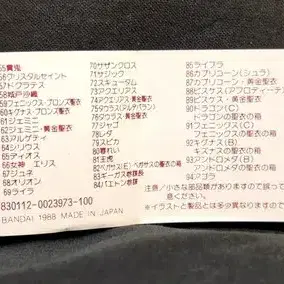 55貴鬼
56クリスタルセイント
57ドクラテス
58城戸沙織
59フェニックス・ブロンズ聖衣
60キグナス・ブロンズ聖衣
61ジェミニ
62ジェミニ・黄金聖衣
63アルゲティ
64シリウス
65ディオス
66女神 エリス
67ジュネ
68オリオン
69ライラ
70サザンクロス
71サジック
72スキュータム
73アクエリアス
74アクエリアス・黄金聖衣
75タウラス
76タウラス・黄金聖衣
77シャゴ
78レダ
79スピカ
80春れい
81王虎
82ペガサス(E)・ペガサスの聖衣の箱
83ギーガス参謀長
84パエトン参謀
85ライブラ
86カプリコーン(シュラ)
87カプリコーン・黄金聖衣
88ピスケス(アフロディーテ)
89ピスケス・黄金聖衣
90ドラゴン(E)
ドラゴンの聖衣の箱
91フェニックス(C)
フェニックスの聖衣の箱
92キグナス(E)
キグナスの聖衣の箱
93アンドロメダ(B)
アンドロメダの聖衣の箱
94アゴラ
注意/小さな部品類がありますので誤って
※イラストと製品とは多少異なりますので
830112-0023973-100
BANDAI 1988 MADE IN JAPAN